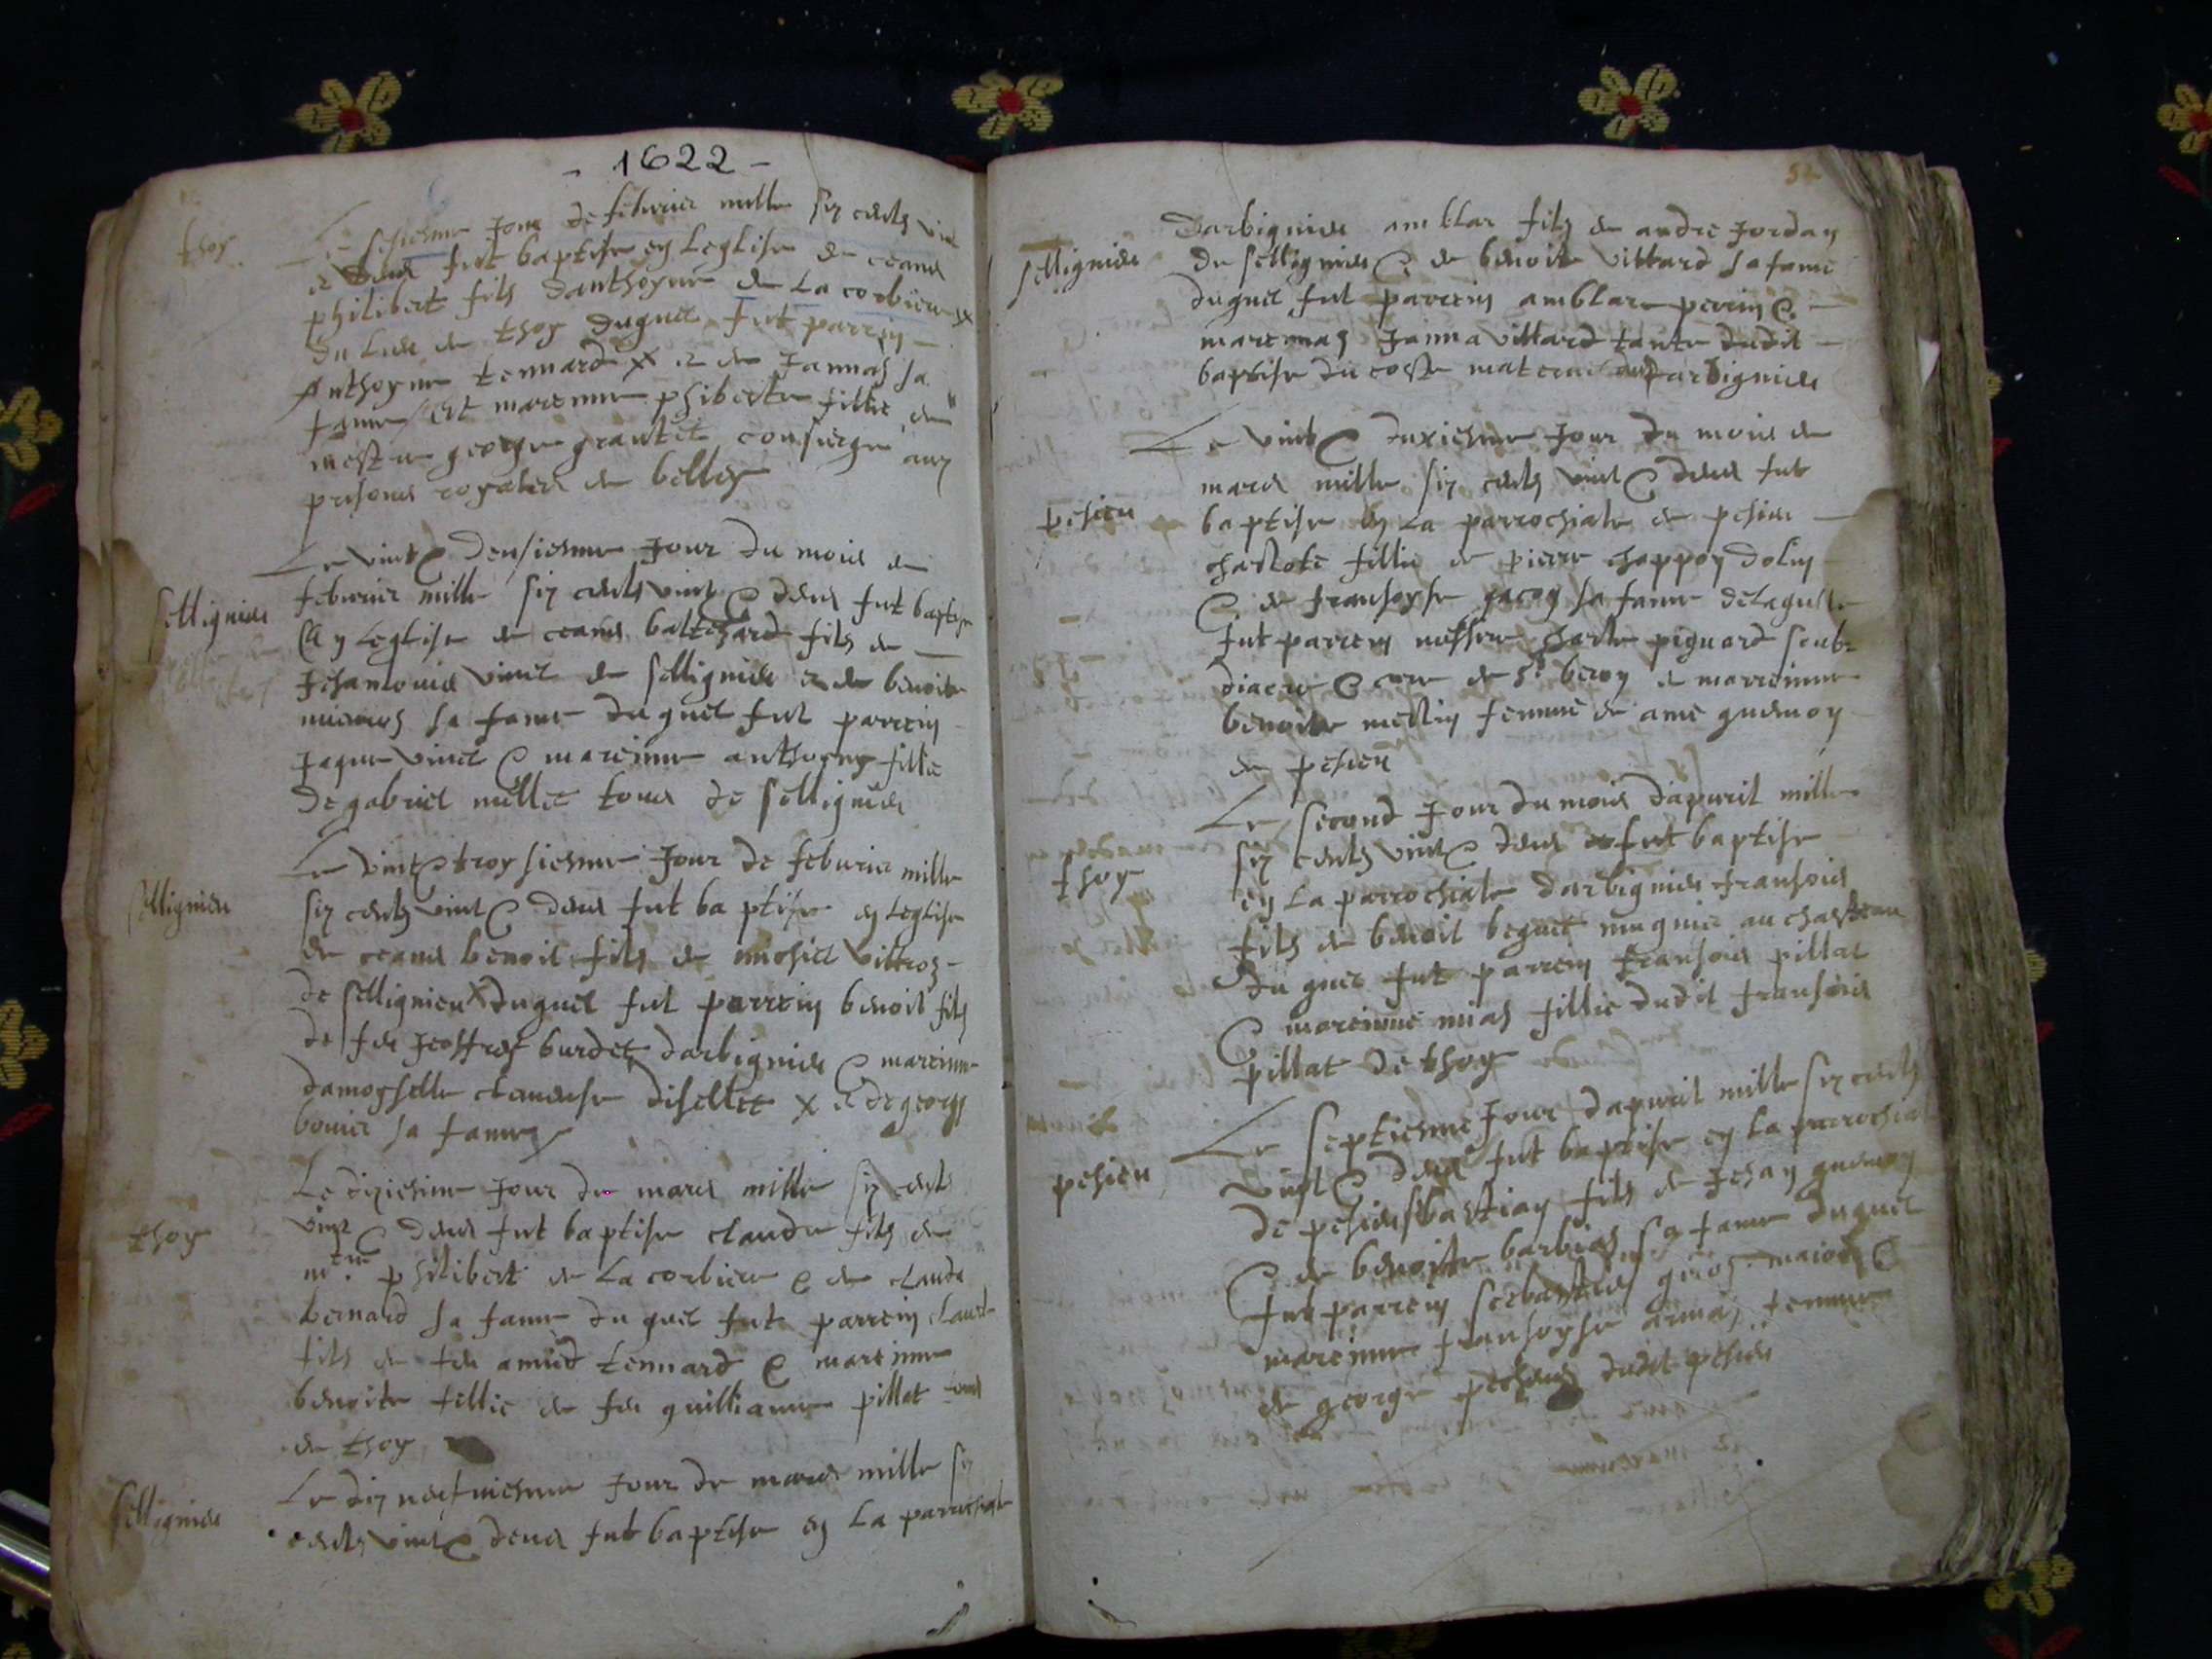 - 1622 -
thoy
Le sesiesme Jour de feburier mille six cents vint
et deus fut baptise en Leglise de ceans
philibert fils danthoyne de La corbiere x
du Lieu de thoy duquel fut parrin
Anthoyne tennard x et de Jannas sa
fame / Et mareine phiberte fillie de
mestre george grantet consierge aux
prisons royales de belley
sellignieu
Le vint & deusiesme Jour du mois de
feburier mille six cents vint & deus fut baptise
En Leglise de ceans baltesard fils de
Jehamois vinet de sellignieu et de benoite
sa fame duquel fut parrein
Jaque vinet & mareine anthoyne fillie
de gabriel millet tous de sellignieu
sellignieu
Le vint & troysiesme Jour de feburier mille
six cents vint & deus fut baptise en Leglise
de ceans benoit fils de michiel vittroz
de sellignieu x duquel fut parrein benoit fils
de feu Jeoffrey burdet darbignieu & mareine
damoyselle claudise disellet x et de george
bouier sa fame
thoy
Le diziesme Jour de mars mille six cents
vint & deus fut baptise claude fils de
mtre philibert de La corbiere & de clauda
bernard sa fame duquel fut parrein claude
fils de feu amied tennard & mareine
benoite fillie de feu guilliaume pillat tous
de thoy
sellignieu
Le diz neufuiesme Jour de mars mille six
cents vint & deus fut baptise en La parrochiale
52
sellignieu
darbignieu amblar fils de andre Jordan
de sellignieu & de benoite vittard sa fame
duquel fut parrein amblar perrin &
mareinne Janna vittard tante dudit
baptise du coste maternel darbignieu
pesieu
Le vint & duxiesme Jour du mois de
mars mille six cents vint & deus fut
baptise en La parrochiale de pesieu
charlote fillie de pierre chappoy dolin
& de fransoyse jacoy sa fame delaquelle
fut parrein messire charle piguard soub
diacre & cure de St beroy et marreinne
benoite mestin femme de ame guemoy
de pesieu
thoy
Le second Jour du mois dapuril mille
six cents vint & deus fut baptise
en La parrochiale darbignieu fransois
fils de benoit beguet mugnier au chasteau
duquel fut parrein fransois pillat
& mareinne mias fillie dudit fransois
pillat de thoy
pesieu
Le septiesme Jour dapuril mille six cents
vint & deus fut baptise en La parrochial
de pesieu sbastian fils de Jehan guemoy
& de benoite sa fame duquel
fut parrein seebastien giroz maior &
mareinne fransoyse femme
de george dudit pesieu